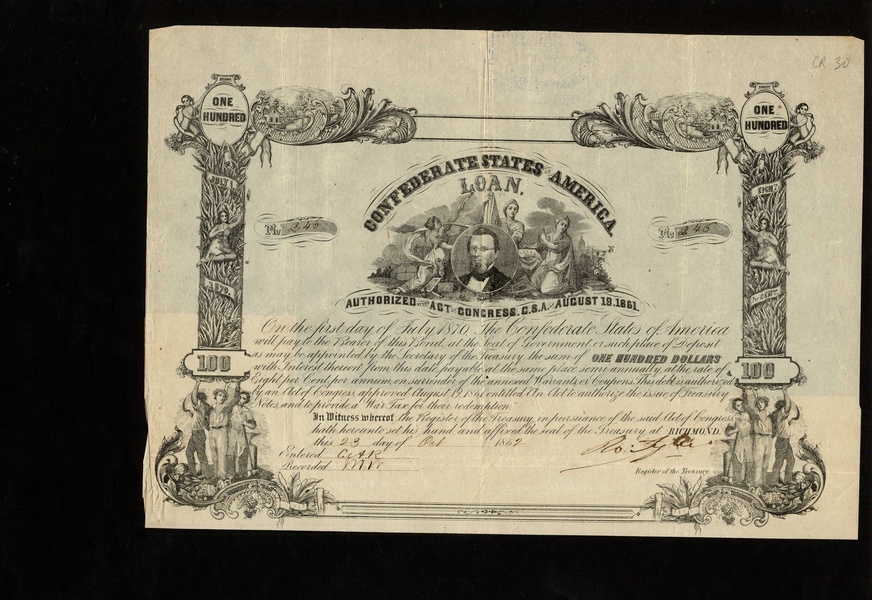 CR 30
ONE HUNDRED
ONE HUNDRED
CONFEDERATE STATES OF AMERICA
LOAN.
JULY 1
1870.
EIGHT
No 246
No 246
AUTHORIZED BY THE ACT OF CONGRESS, C.S.A. OF AUGUST 19.1861.
On the first day of July 1870, The Confederate States of America
will pay to the Bearer of this Bond, at the Seat of Government or such place of Deposit
as may be appointed by the Secretary of the Treasury, the sum of ONE HUNDRED DOLLARS
with Interest thereon from this date, payable at the same place semi-annually, at the rate of
Eight per Cent. per annum, on surrender of the annexed Warrants or Coupons. This debt is authorized
by an Act of Congress, approved August 19, 1861, entitled An Act to authorize the issue of Treasury
Notes, and to provide a War Tax for their redemption.
100
100
In Witness whereof the Register of the Treasury, in pursuance of the said Act of Congress
hath hereunto set his hand and affixed the seal of the Treasury at RICHMOND.
this 23 day of Oct 1862
Entered
Recorded
Register of the Treasury.